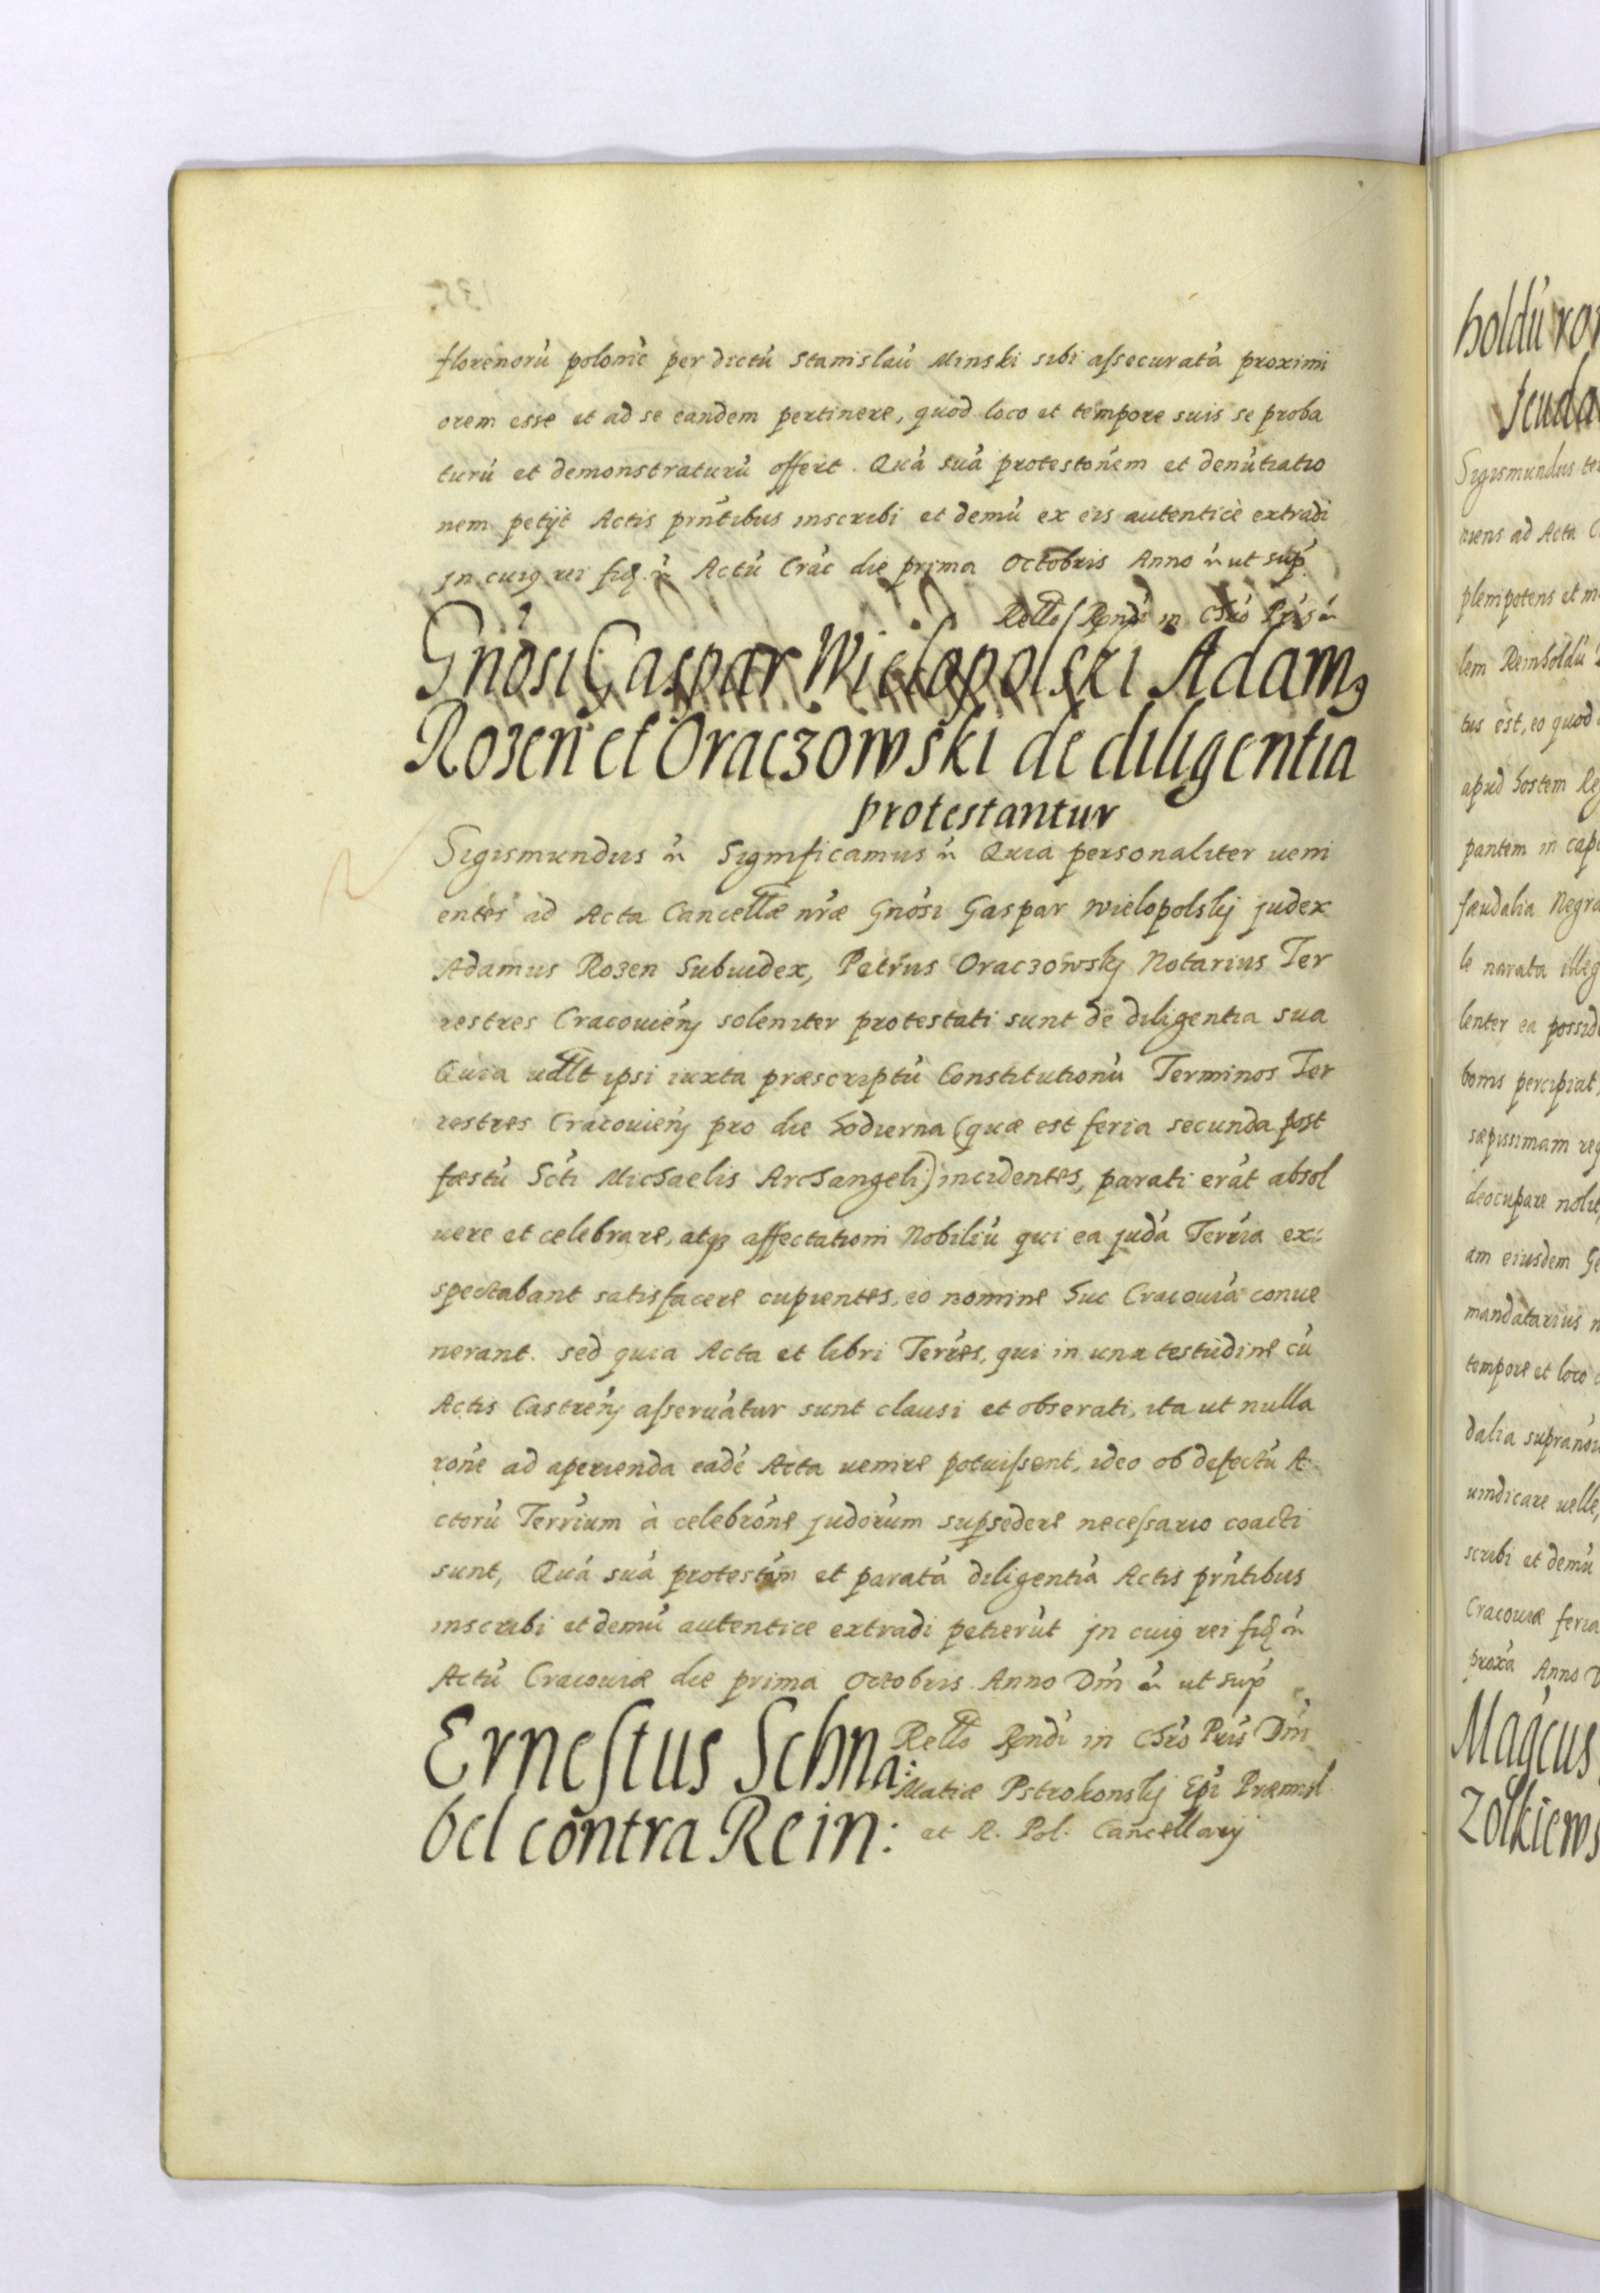 florenorũ polonic̃ per dictũ Stanislaũ Minski sibi assecuratã proximi
orem esse et ad se eandem pertinere, quod loco et tempore suis se proba
turũ et demonstraturũ offert. Quã suã protestoñem et denũtiatio
nem petijt Actis prñtibus inscribi et demũ ex eis autenticè extradi
jn cuius rei fid. Actũ Crac̃ die prima Octobris Anno ut sup.
Rello Rẽndi in Chro Pris
Gñosi Gaspar Wielopolski Adamus
Rozen et Oraczowski de diligentia
protestantur
Sigismundus Significamus Quia personaliter veni
entes ad Acta Cancellæ nræ Gñosi Gaspar Wielopolskj judex
Adamus Rozen Subiudex, Petrus Oraczowskj Notarius Ter
restres Cracovieñ soleniter protestati sunt de diligentia sua
Quia vdlt ipsi iuxta præscriptũ Constitutionũ Terminos Ter
restres Cracovieñ pro die hodierna (quæ est feria secunda post
fæstũ Scti Michaelis Archangeli) incidentes, parati erãt absol
vere et celebrare, atq affectationi Nobiliũ qui ea judã Terria ex:
spectabant satisfacere cupientes, eo nomine huc Cracoviã conve
nerant. sed quia Acta et libri Terres, qui in una testudine cũ
Actis Castreñ asservãtur sunt clausi et obserati, ita ut nulla
rone ad aperienda eadẽ Acta venire potuissent, ideo ob defectũ A
ctorũ Terrium à celebrõne judorum supsedere necessario coacti
sunt, Quã suã protestãm et paratã diligentiã Actis prñtibus
inscribi et demũ autentice extradi petierũt jn cuius rei fid
Actũ Cracoviæ die prima Octobris Anno Dñi ut sup
Ernestus Schna:
Rello Rẽndi in Chro Pris Dñi
Matiæ Pstrokonskj Epi Præmisl
bel contra Rein:
et R. Pol. Cancellarij
holdũ
feuda
Sigismundus
niens ad Acta
plenipotens et
lem Reinholdũ
tus est, eo quod
apud hostem
pantem in
fæudalia
le narata
lenter ea
bonis percipiat,
sæpissimam
deocupare
am eiusdem
mandatarius
tempore et loco
dalia
vindicare velle,
scribi et demũ
Cracoviæ feria
proxã Anno
Magcus
Zolkiews